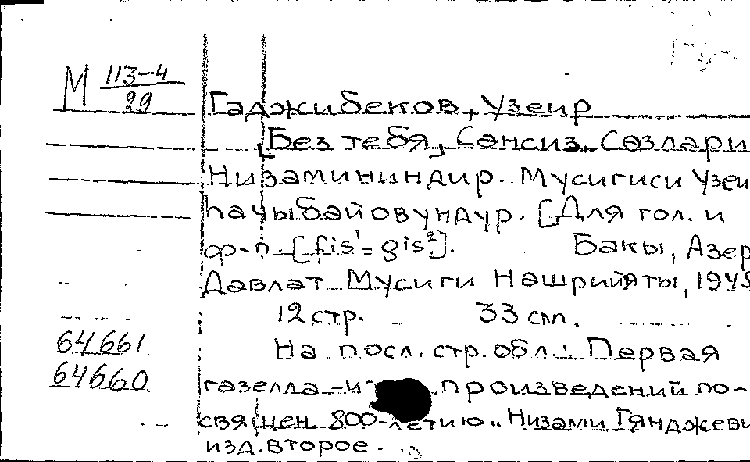 М 113-4
29
Гаджибеков, Узеир
[Без тебя, Сенсиз. Сөзләри
Низамининдир. Мусигиси Узеи
Һаҷыбәйовундур. [Для гол. и
ф-п. [fis¹=gis²]. Бакы, Азер
Дәвләт Мусиги Нәшрийяты, 194
12 стр. 33 cm.
64661 На посл. стр. обл.: Первая
64660 газелла произведений по-
священ. 800-летию „Низами Гянджеви
изд. второе.